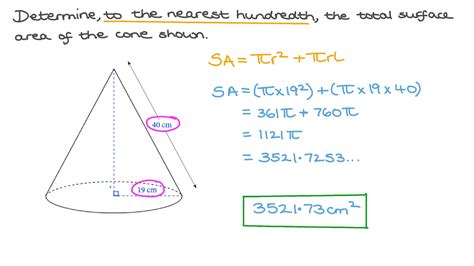 Determine, to the nearest hundredth, the total surface
area of the cone shown.
SA = πr² + πrl
SA = (π×19²) + (π × 19 × 40)
= 361π + 760π
= 1121π
= 3521·7253...
3521·73cm²
40 cm
19 cm